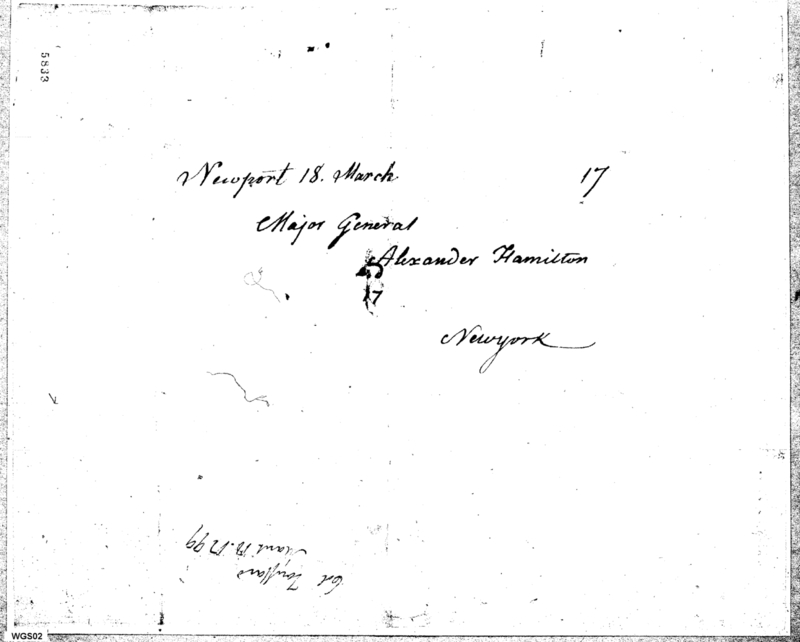 5833
Newport 18. March 17
Major General
Alexander Hamilton
17
Newyork
Col Toussard
March 18. 1799
WGS02